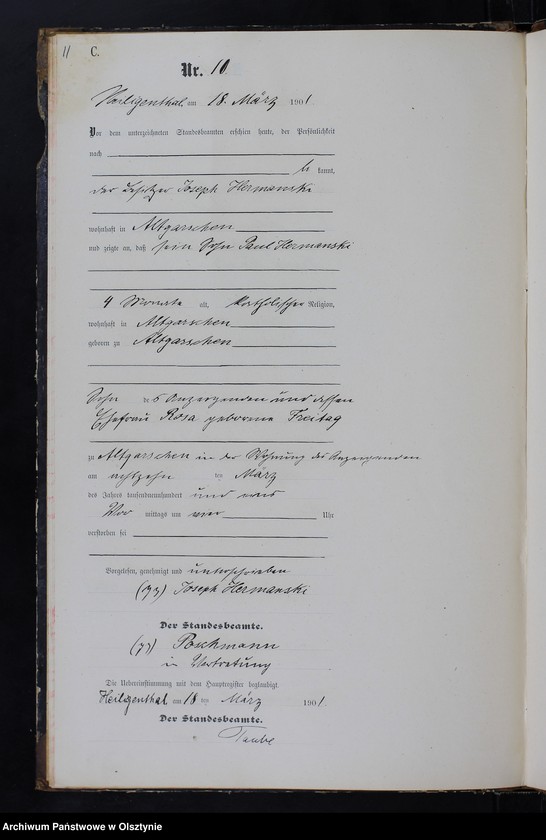 11 C.
Nr. 10.
Heiligenthal am 18. März 1901
Vor dem unterzeichneten Standesbeamten erschien heute, der Persönlichkeit
nach
kannt,
der Besitzer Joseph Hermanski
wohnhaft in Altgarschen
und zeigte an, daß sein Sohn Paul Hermanski
4 Monate alt, katholischer Religion,
wohnhaft in Altgarschen
geboren zu Altgarschen
Sohn des Anzeigenden und dessen
Ehefrau Rosa geborene Freitag
zu Altgarschen in der Wohnung des Anzeigenden
am achtzehn ten März
des Jahres tausendneunhundert und eins
Vor mittags um vier Uhr
verstorben sei
Vorgelesen, genehmigt und unterschrieben
(gz) Joseph Hermanski
Der Standesbeamte.
(gz) Poschmann
in Vertretung
Die Uebereinstimmung mit dem Hauptregister beglaubigt.
Heiligenthal am 18 ten März 1901.
Der Standesbeamte.
Taube
Archiwum Państwowe w Olsztynie